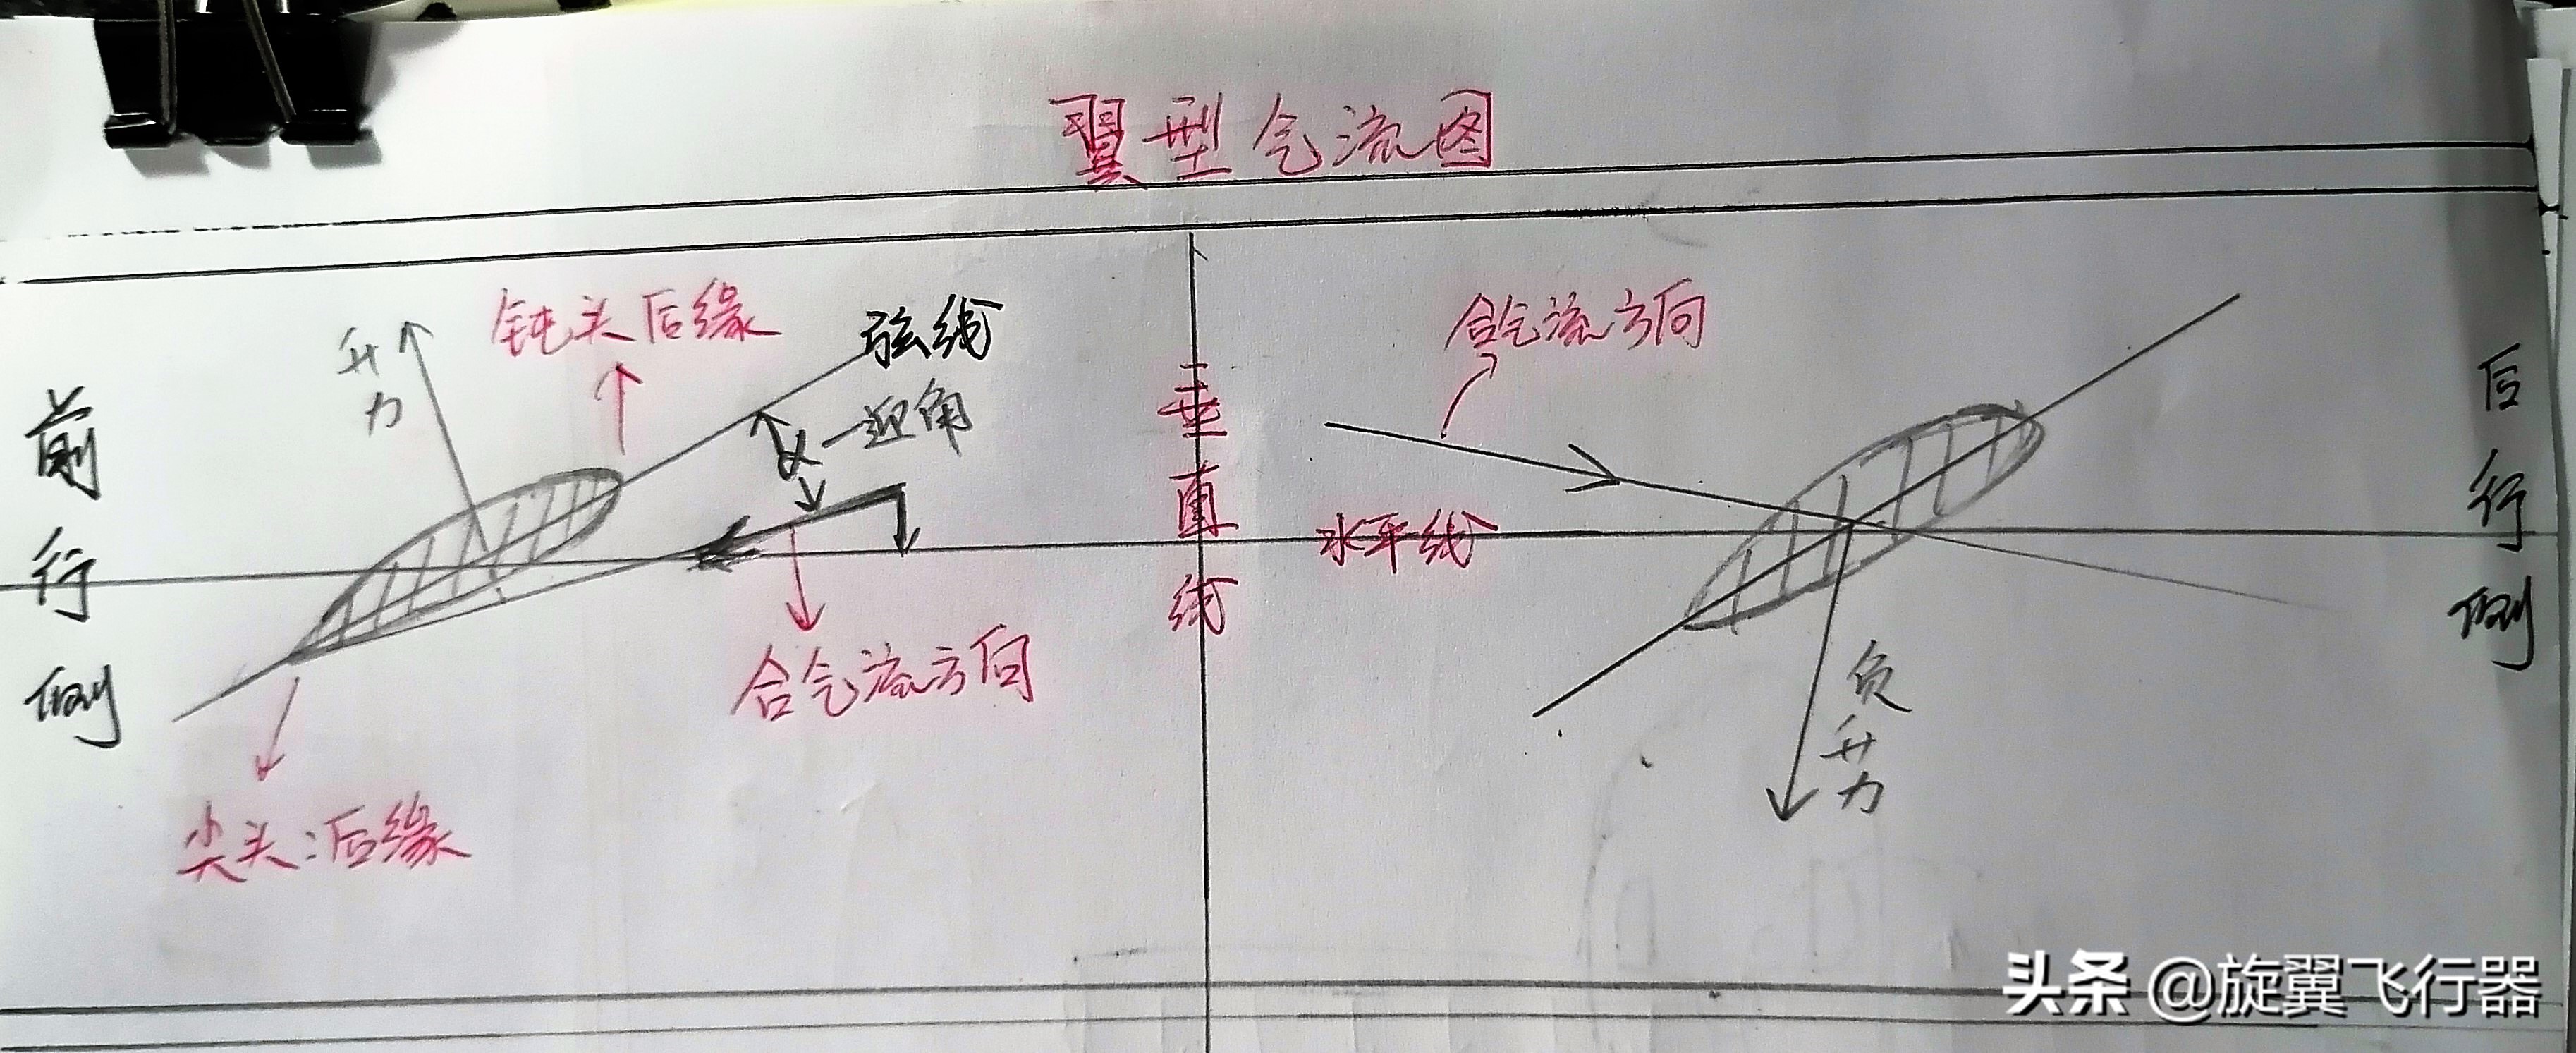 翼型气流图
前行侧
升力
钝头后缘
弦线
α—迎角
合气流方向
尖头:后缘
垂直线
合气流方向
水平线
负升力
后行侧
头条 @旋翼飞行器